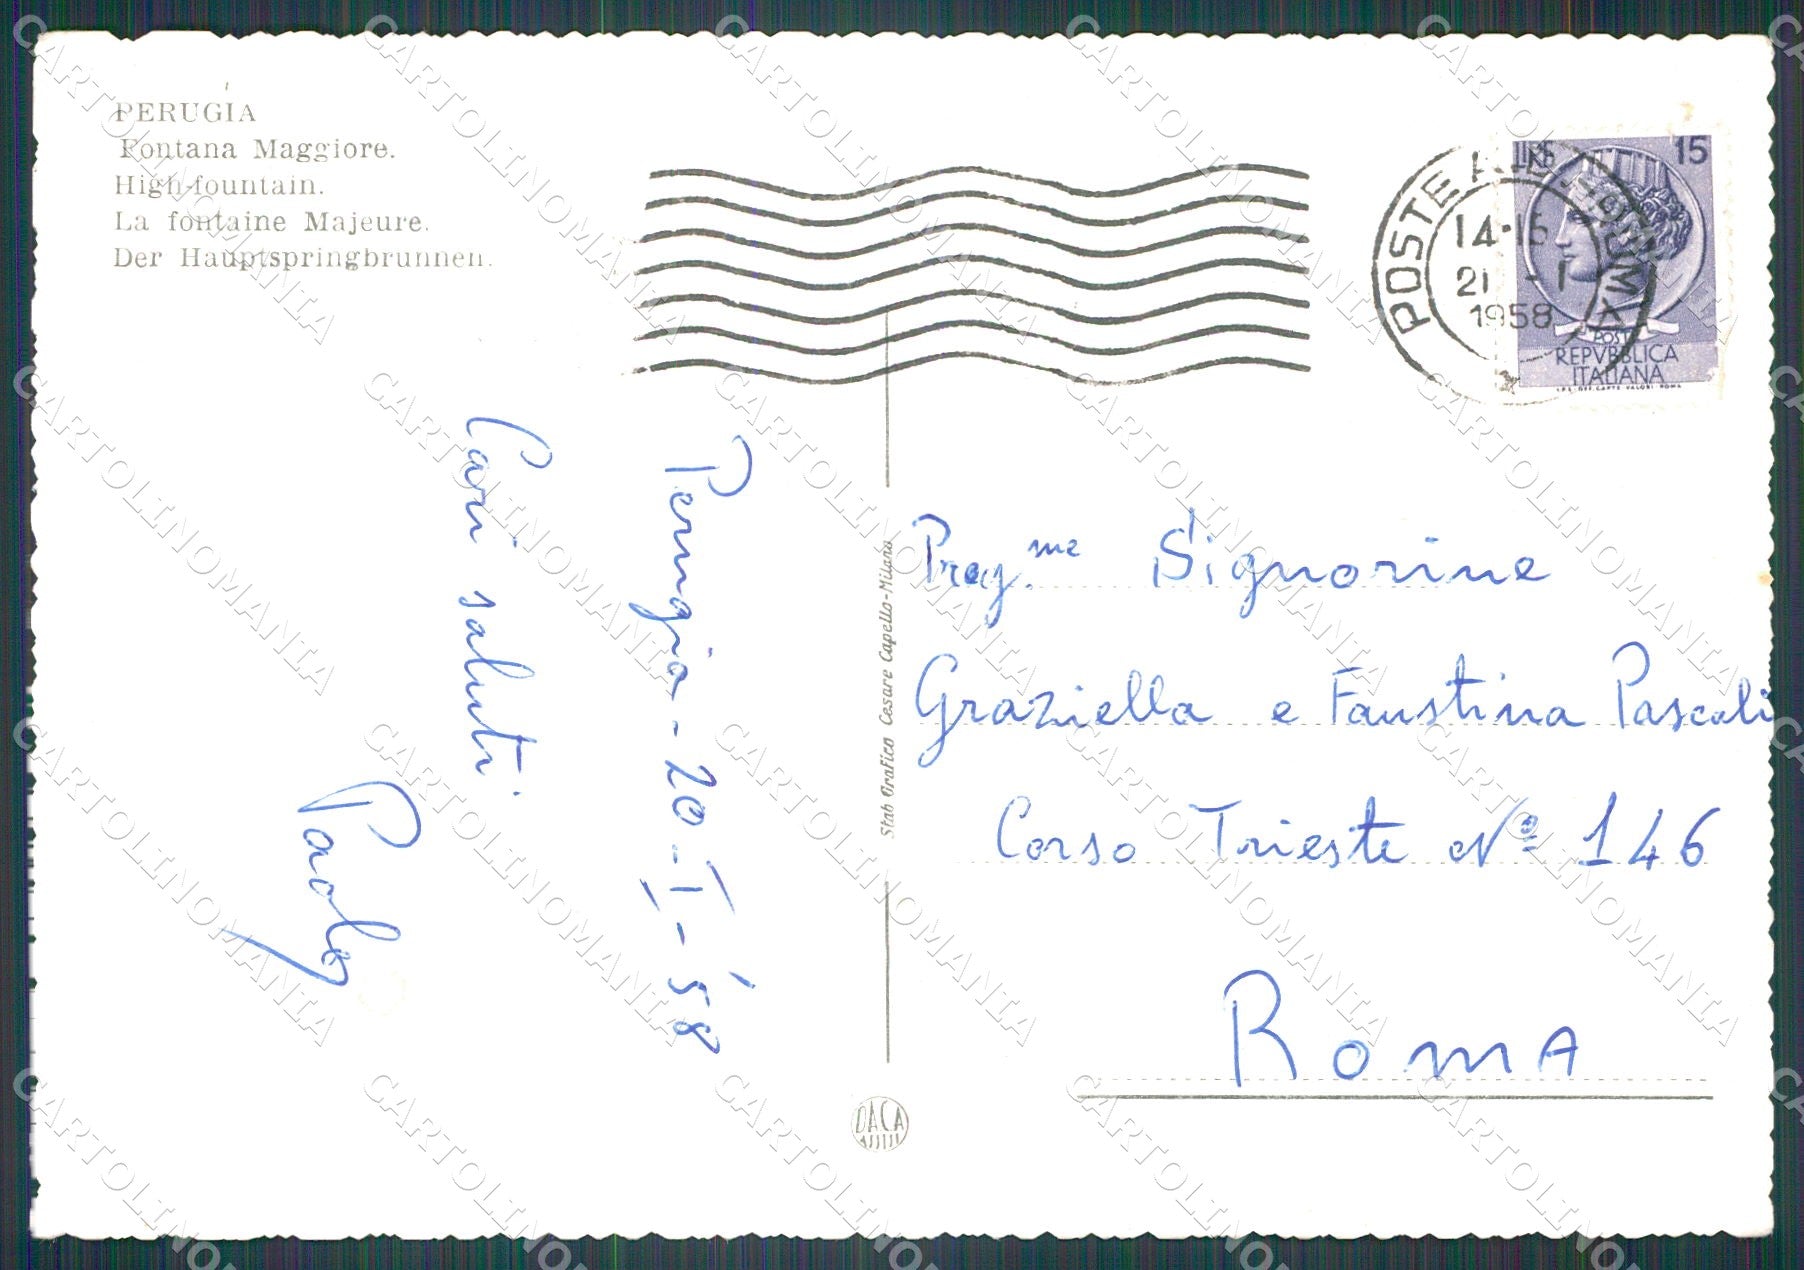 PERUGIA
Fontana Maggiore.
High-fountain.
La fontaine Majeure.
Der Hauptspringbrunnen.
POSTE
14-15
21 - 1
1958
LIRE 15
POSTE
REPVBBLICA
ITALIANA
I.P.S. OFF. CARTE VALORI ROMA
Perugia - 20 - I - '58
Cari saluti.
Paolo
Stab Grafico Cesare Capello-Milano
Preg.me Signorine
Graziella e Faustina Pascali
Corso Trieste Nº 146
ROMA
DACA
CARTOLINOMANIA